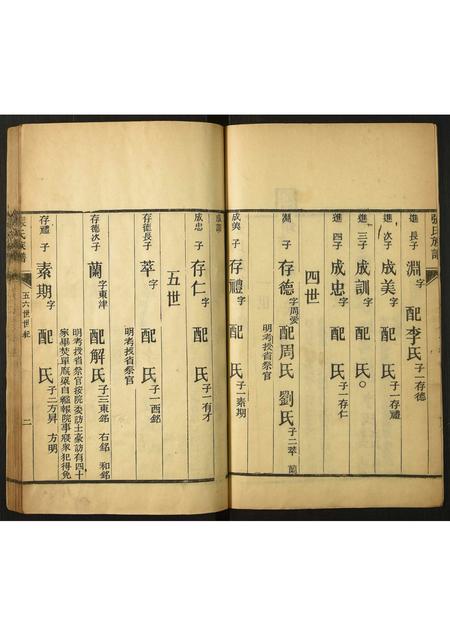 張氏族譜
進 長子 淵 字 配李氏 子一存德
進 次子 成美 字 配 氏 子一存禮
進 三子 成訓 字 配 氏 ○
進 四子 成忠 字 配 氏 子一存仁
四世
淵 子 存德 字周褎 配周氏 劉氏 子二萃 蘭
明考授省祭官
成美 子 存禮 字 配 氏 子一素期
成忠 子 存仁 字 配 氏 子一有才
五世
存德長子 萃 字 配 氏 子一西銘
明考授省祭官
存德次子 蘭 字東津 配解氏 子三東銘 右銘 和銘
明考授省祭官按院委訪土豪訪有四十
家畢焚單厥梁自縊報院事寢衆犯得免
存禮 子 素期 字 配 氏 子二方昇 方明
張氏族譜
五六世世紀
二